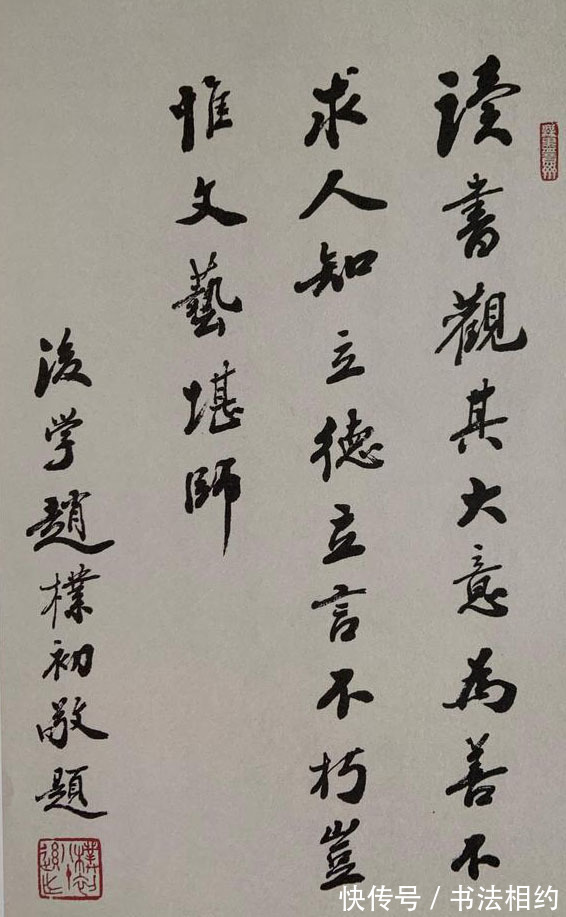 读书觀其大意為善不
求人知立德立言不朽豈
惟文藝堪師
後学趙樸初敬題
快传号/书法相约